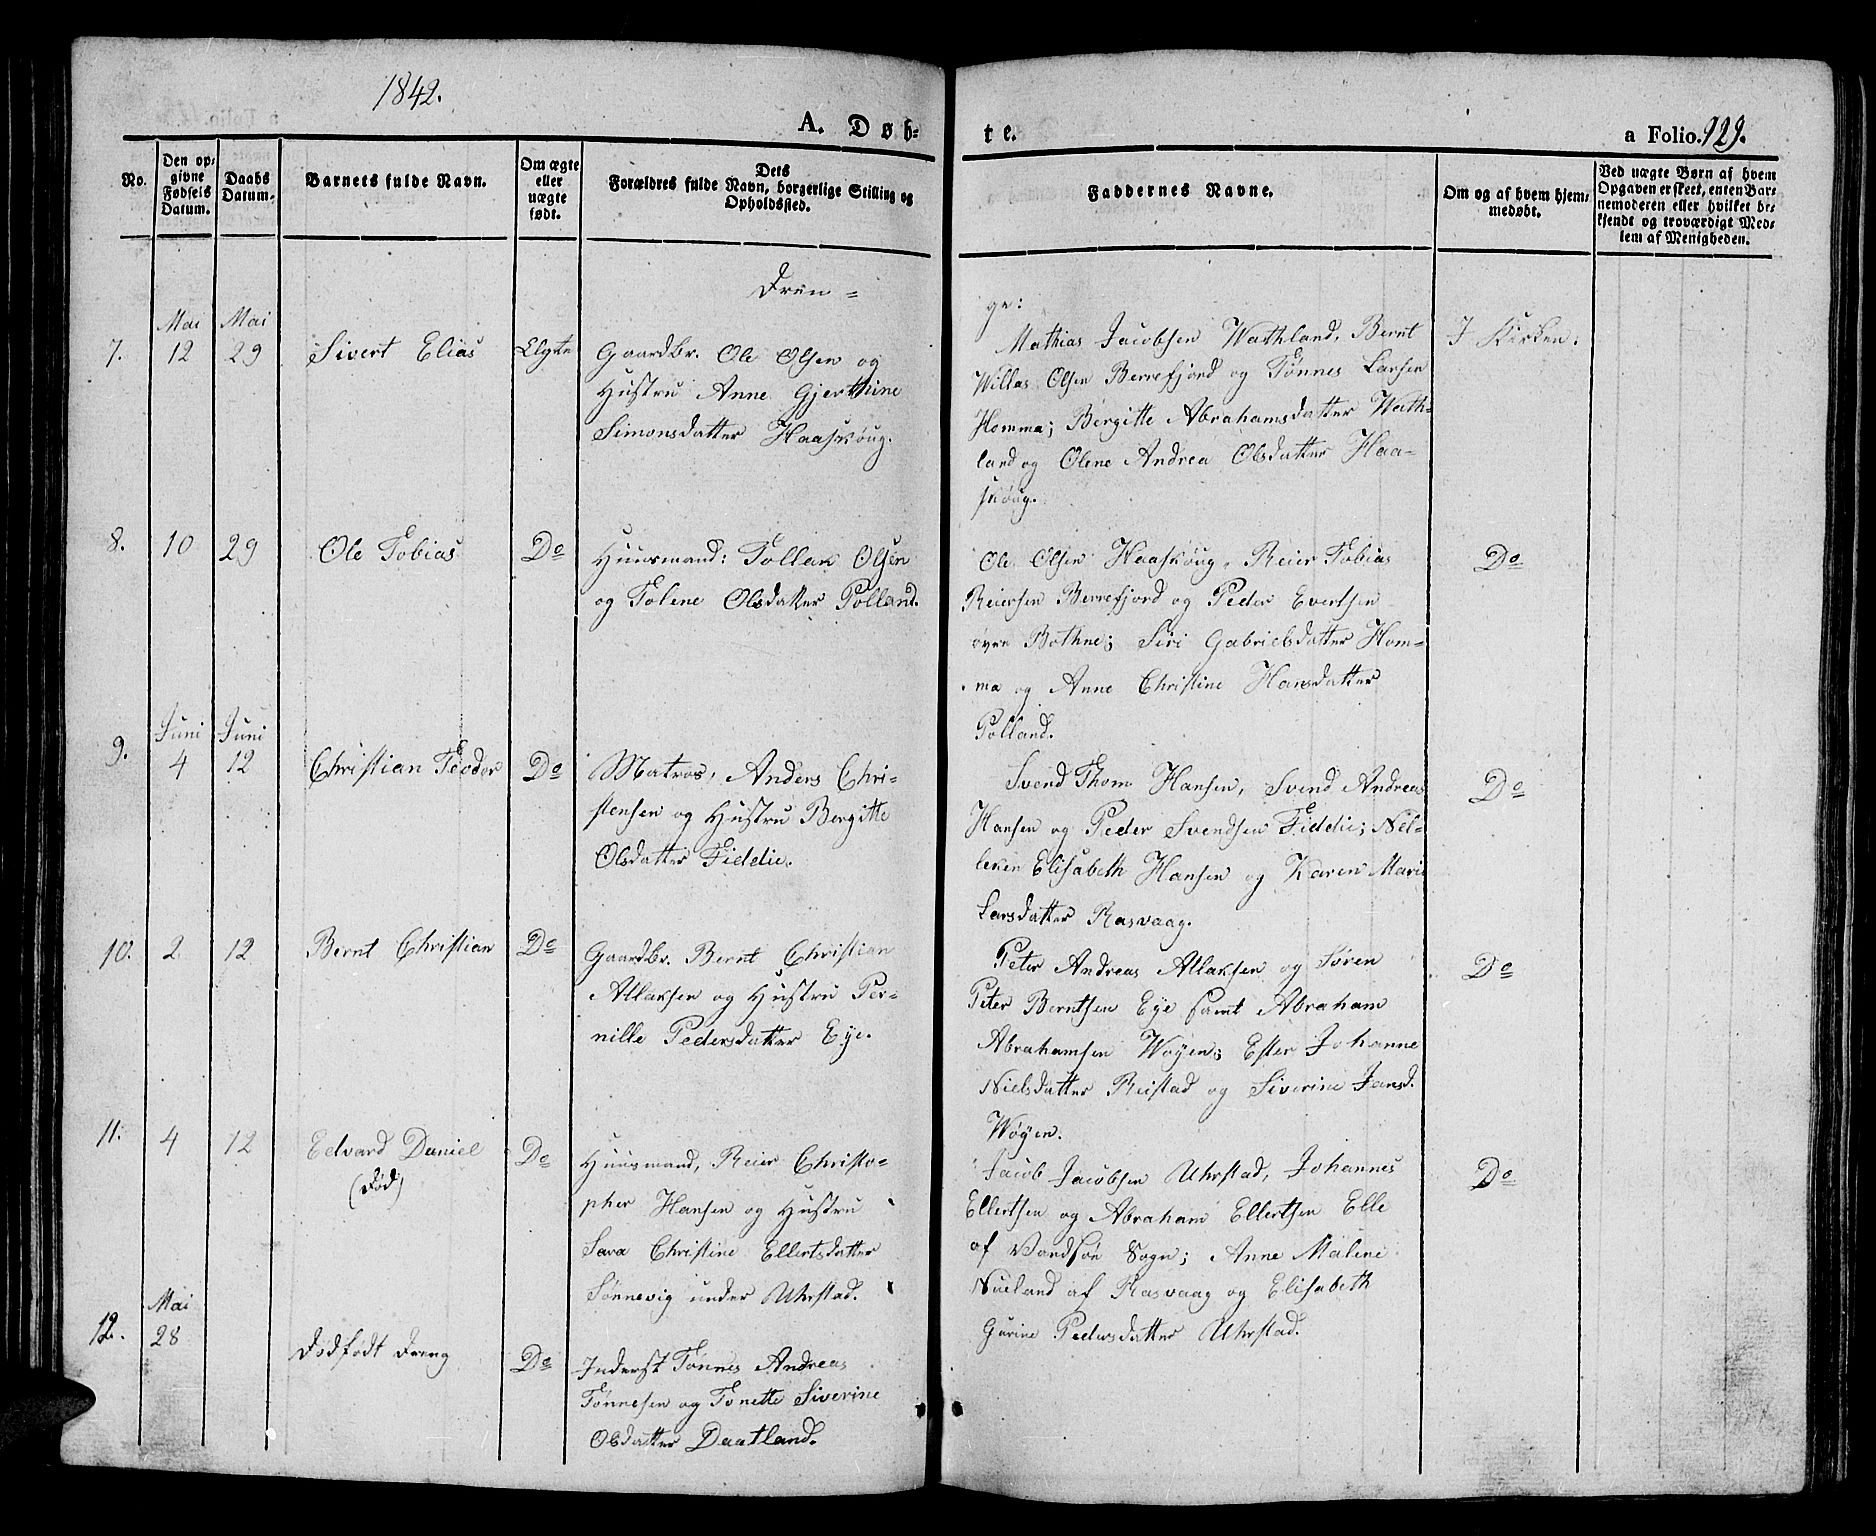 1842.
A. Døb-
te.
a Folio. 929.
No.
Den op-
givne
Fødsels
Datum.
Daabs
Datum.
Barnets fulde Navn.
Om ægte
eller
uægte
født.
Dets
Forældres fulde Navn, borgerlige Stilling og
Opholdssted.
Faddernes Navne.
Om og af hvem hjem-
medøbt.
Ved uægte Børn af hvem
Opgaven er skeet, enten Bar-
nemoderen eller hvilket be-
kjendt og troværdigt Med-
lem af Menigheden.
Dren=
ge:
7.
Mai
12
Mai
29
Sivert Elias
Ægte
Gaardbr. Ole Olsen og
Hustru Anne Gjerthine
Simonsdatter Haaskøug.
Mathias Jacobsen Wathland, Bernt
Willas Olsen Berrefjord og Tønnes Larsen
Homma; Bergitte Abrahamsdatter Wath-
land og Olene Andrea Olsdatter Haa-
skøug.
I Kirken.
8.
10
29
Ole Tobias
Do
Huusmand: Tollak Olsen
og Tolene Olsdatter Polland.
Ole Olsen Haaskøug, Reier Tobias
Reiersen Berrefjord og Peder Evertsen
øvre Bothne; Siri Gabrielsdatter Hom-
ma og Anne Christine Hansdatter
Polland.
Do
9.
Juni
4
Juni
12
Christian Teodor
Do
Matros, Anders Chri-
stensen og Hustru Bergitte
Olsdatter Fiddie.
Svend Thom Hansen, Svend Andreas
Hansen og Peder Svendsen Fiddie; Nel-
leken Elisabeth Hansen og Karen Marie
Larsdatter Rasvaag.
Do
10.
2
12
Bernt Christian
Do
Gaardbr. Bernt Christian
Atlaksen og Hustru Per-
nille Pedersdatter Eye.
Peter Andreas Atlaksen og Søren
Peter Berntsen Eye samt Abraham
Abrahamsen Wøyen; Ester Johanne
Nielsdatter Reistad og Siverine Jansd.
Wøyen.
Do
11.
4
12
Edvard Daniel
(Død)
Do
Huusmand, Reier Christo-
pher Hansen og Hustru
Sara Christine Ellertsdatter
Sønnevig under Uhrstad.
Jacob Jacobsen Uhrstad, Johannes
Ellertsen og Abraham Ellertsen Elle
af Vandsøe Sogn; Anne Malene
Nueland af Rasvaag og Elisabeth
Gurine Pedersdatter Uhrstad.
Do
12.
Mai
28
Dødfødt Dreng
Do
Inderst Tønnes Andreas
Tønnesen og Tonette Siverine
Olsdatter Daatland.